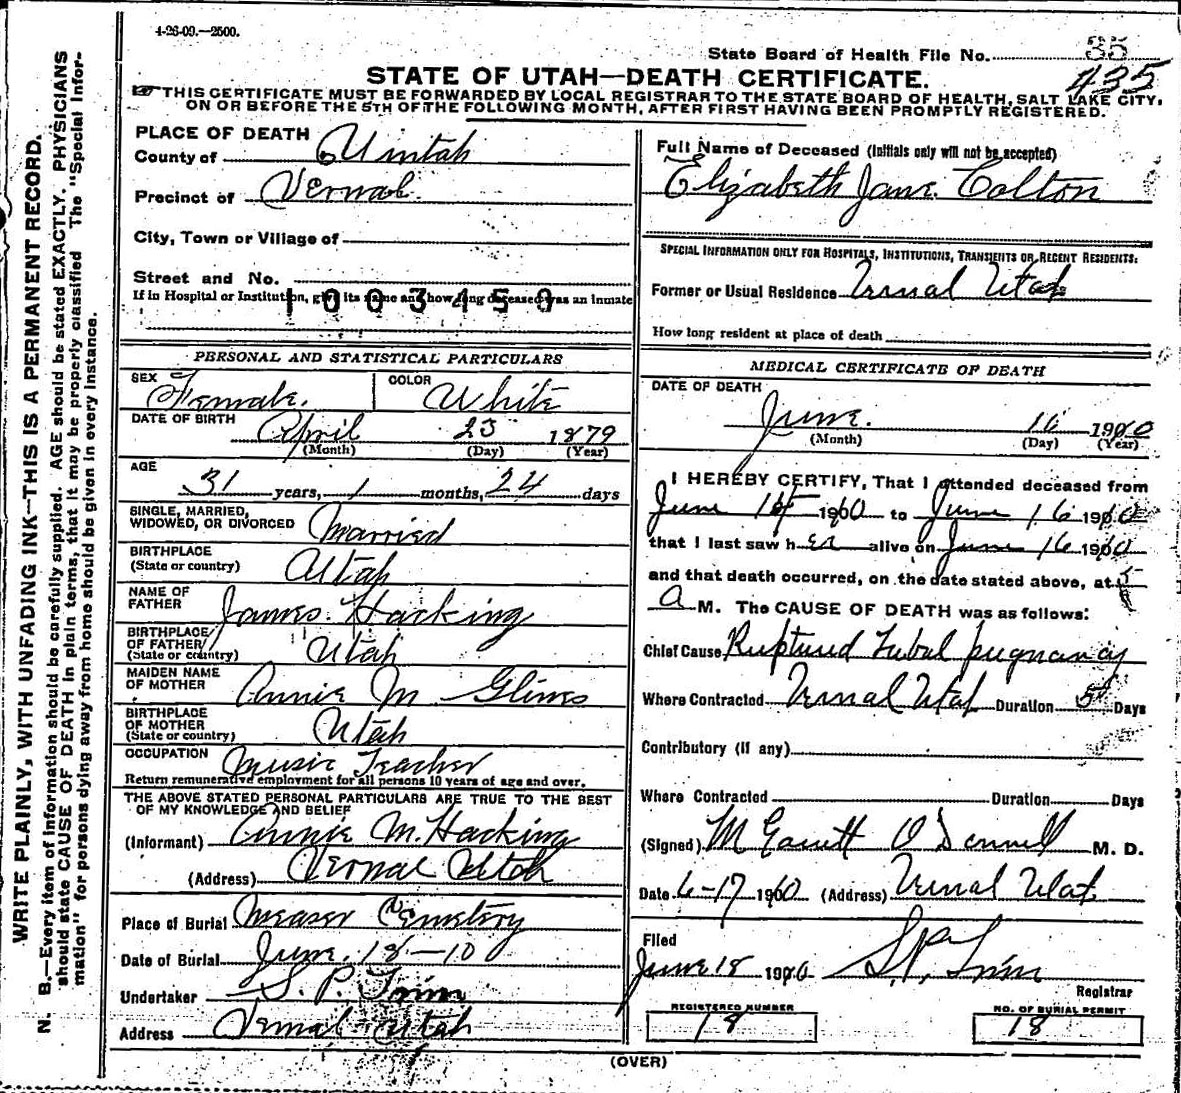 4-26-09.—2500.
State Board of Health File No. 35
435
STATE OF UTAH—DEATH CERTIFICATE.
THIS CERTIFICATE MUST BE FORWARDED BY LOCAL REGISTRAR TO THE STATE BOARD OF HEALTH, SALT LAKE CITY,
ON OR BEFORE THE 5TH OF THE FOLLOWING MONTH, AFTER FIRST HAVING BEEN PROMPTLY REGISTERED.
WRITE PLAINLY, WITH UNFADING INK—THIS IS A PERMANENT RECORD.
N. B.—Every item of information should be carefully supplied. AGE should be stated EXACTLY. PHYSICIANS
should state CAUSE OF DEATH in plain terms, that it may be properly classified The "Special Infor-
mation" for persons dying away from home should be given in every instance.
PLACE OF DEATH
County of Uintah
Precinct of Vernal.
City, Town or Village of
Street and No.
If in Hospital or Institution, give its name and how long deceased was an inmate
1003450
PERSONAL AND STATISTICAL PARTICULARS
SEX Female. COLOR White
DATE OF BIRTH April 23 1879
(Month) (Day) (Year)
AGE
31 years, 1 months, 24 days
SINGLE, MARRIED,
WIDOWED, OR DIVORCED Married
BIRTHPLACE
(State or country) Utah
NAME OF
FATHER James Hacking
BIRTHPLACE
OF FATHER
(State or country) Utah
MAIDEN NAME
OF MOTHER Annie M Glines
BIRTHPLACE
OF MOTHER
(State or country) Utah
OCCUPATION Music Teacher
Return remunerative employment for all persons 10 years of age and over.
THE ABOVE STATED PERSONAL PARTICULARS ARE TRUE TO THE BEST
OF MY KNOWLEDGE AND BELIEF
(Informant) Annie M. Hacking
(Address) Vernal Utah
Place of Burial Measer Cemetery
Date of Burial June. 18—10
Undertaker S. P. Trim
Address Vernal Utah
Full Name of Deceased (Initials only will not be accepted)
Elizabeth Jane Colton
SPECIAL INFORMATION ONLY FOR HOSPITALS, INSTITUTIONS, TRANSIENTS OR RECENT RESIDENTS:
Former or Usual Residence Vernal Utah
How long resident at place of death
MEDICAL CERTIFICATE OF DEATH
DATE OF DEATH
June. 16 1910
(Month) (Day) (Year)
I HEREBY CERTIFY, That I attended deceased from
June 1910 to June 16 1910
that I last saw her alive on June 16 1910
and that death occurred, on the date stated above, at 5
a M. The CAUSE OF DEATH was as follows:
Chief Cause Ruptured Tubal pregnancy
Where Contracted Vernal Utah Duration Days
Contributory (if any)
Where Contracted Duration Days
(Signed) M Garrett O'Donnell M. D.
Date 6-17 1910 (Address) Vernal Utah
Filed
June 18 1910 S. P. Trim
Registrar
REGISTERED NUMBER
18
NO. OF BURIAL PERMIT
18
(OVER)